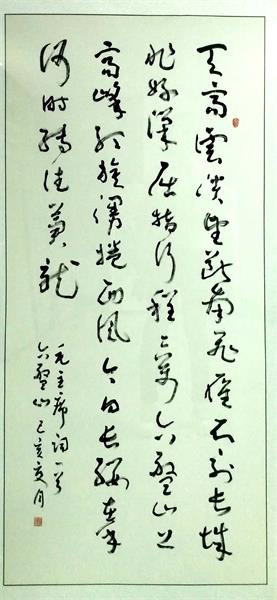 天高雲淡望斷南飛雁不到長城
非好漢屈指行程二萬六盤山上
高峰紅旗漫捲西風今日長纓在手
何時縛住蒼龍
毛主席詞一首
六盤山己亥夏月